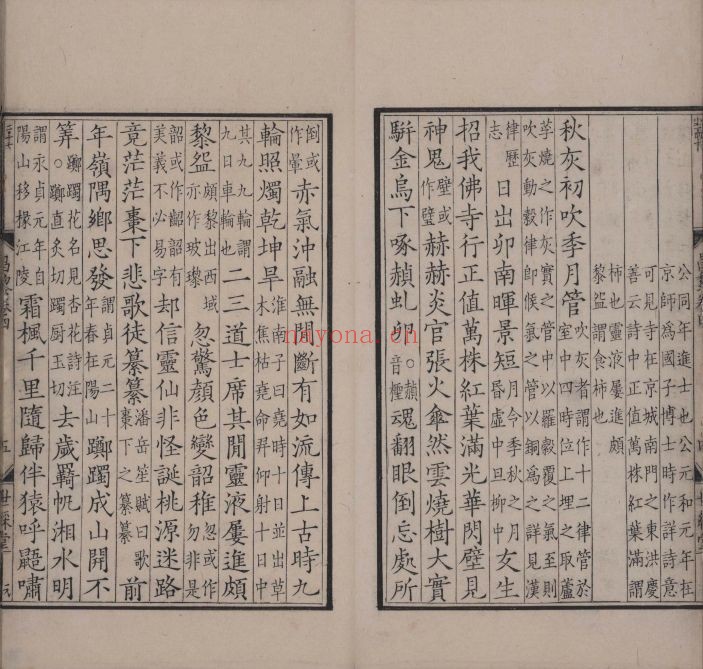 公同年進士也公元和元年在
京師為國子博士時作詳詩意
可見寺在京城南門之東洪慶
善云詩中正值萬株紅葉滿謂
柿也靈液屢進頗
黎盌謂食柿也
秋灰初吹季月管吹灰者謂作十二律管於室中四時位上埋之取蘆
莩燒之作灰實之管中以羅縠覆之氣至則
吹灰動縠律即候氣之管以銅為之詳見漢
律歷志日出卯南暉景短月令季秋之月昏虛中旦柳中女生
招我佛寺行正值萬株紅葉滿光華閃壁見
神鬼壁或作璧赫赫炎官張火傘然雲燒樹大實
駢金烏下啄赬虬卵○赬音檉魂翻眼倒忘處所
倒或作暈赤氣沖融無間斷有如流傳上古時九
輪照燭乾坤旱淮南子曰堯時十日並出草木焦枯堯命羿仰射十日中
其九九輪謂九日車輪也二三道士席其間靈液屢進頗
黎盌頗黎出西域亦作玻瓈忽驚顏色變韶稚忽或作勿非是
韶或作韶韶有美義不必易字却信靈仙非怪誕桃源迷路
竟茫茫棗下悲歌徒纂纂潘岳笙賦曰歌棗下之纂纂前
年嶺隅鄉思發謂貞元二十年春在陽山躑躅成山開不
筭○躑躅花名見杏花詩注躑直炙切躅厨玉切去歲羇帆湘水明
謂永貞元年自陽山移掾江陵霜楓千里隨歸伴猿呼鼯嘯
昌黎卷四
五
世綵堂
nayona.cn